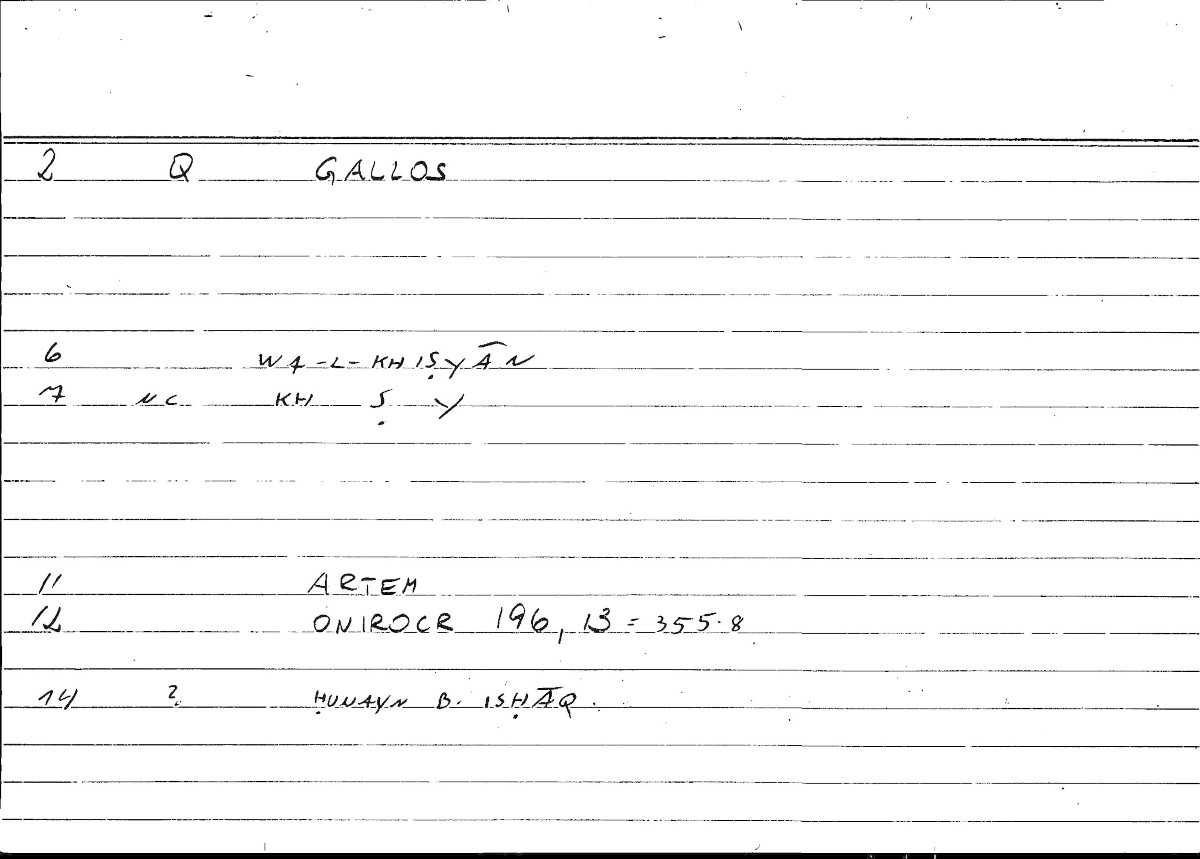 2 Q GALLOS
6 WA-L-KHIṢYĀN
7 NC KH Ṣ Y
11 ARTEM
12 ONIROCR 196, 13 = 355.8
14 2 ḤUNAYN B. ISḤĀQ.